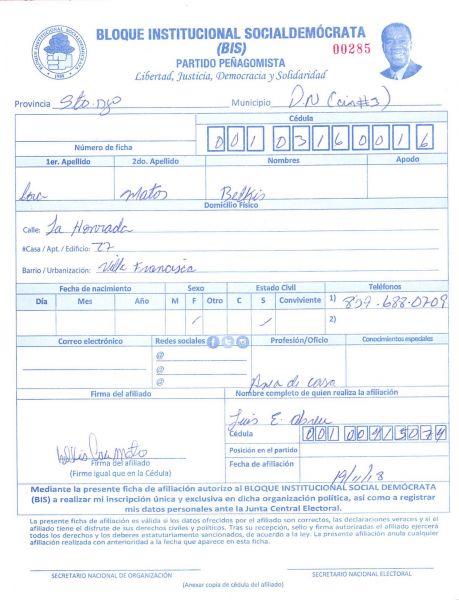 BLOQUE INSTITUCIONAL SOCIALDEMÓCRATA
(BIS)
00285
PARTIDO PEÑAGOMISTA
Libertad, Justicia, Democracia y Solidaridad
Provincia Sto. Dgo Municipio D.N (cir #3)
Cédula
Número de ficha
1er. Apellido 2do. Apellido Nombres Apodo
Matos Belkis
Domicilio Físico
Calle: La Honrada
#Casa / Apt. / Edificio: 27
Barrio / Urbanización: Villa Francisca
Fecha de nacimiento Sexo Estado Civil Teléfonos
Día Mes Año M F Otro C S Conviviente 1) 809-688-0709
2)
Correo electrónico Redes sociales Profesión/Oficio Conocimientos especiales
@
@
@
Ama de casa
Firma del afiliado Nombre completo de quien realiza la afiliación
Luis E. Abreu
Cédula
Posición en el partido
Firma del afiliado
(Firma igual que en la Cédula)
Fecha de afiliación 19/11/18
Mediante la presente ficha de afiliación autorizo al BLOQUE INSTITUCIONAL SOCIAL DEMÓCRATA
(BIS) a realizar mi inscripción única y exclusiva en dicha organización política, así como a registrar
mis datos personales ante la Junta Central Electoral.
La presente ficha de afiliación es válida si los datos ofrecidos por el afiliado son correctos, las declaraciones veraces y si el
afiliado tiene el disfrute de sus derechos civiles y políticos. Tras su recepción, sello y firma autorizadas el afiliado ejercerá
todos los derechos y los deberes estatutariamente sancionados, de acuerdo a la ley. La presente afiliación anula cualquier
afiliación realizada con anterioridad a la fecha que aparece en esta ficha.
SECRETARIO NACIONAL DE ORGANIZACIÓN SECRETARIO NACIONAL ELECTORAL
(Anexar copia de cédula del afiliado)